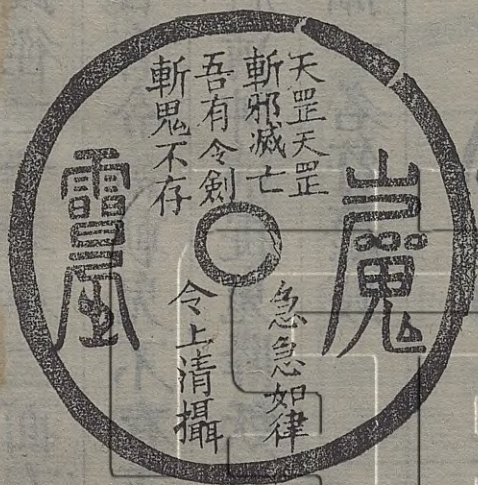 天罡天罡
斬邪滅亡
吾有令劍
斬鬼不存
急急如律
令上清攝